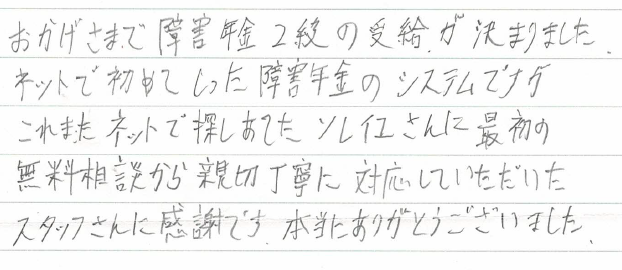 おかげさまで障害年金2級の受給が決まりました。
ネットで初めてしった障害年金のシステムですが
これまたネットで探しあてたソレイユさんに最初の
無料相談から親切丁寧に対応していただいた
スタッフさんに感謝です。本当にありがとうございました。